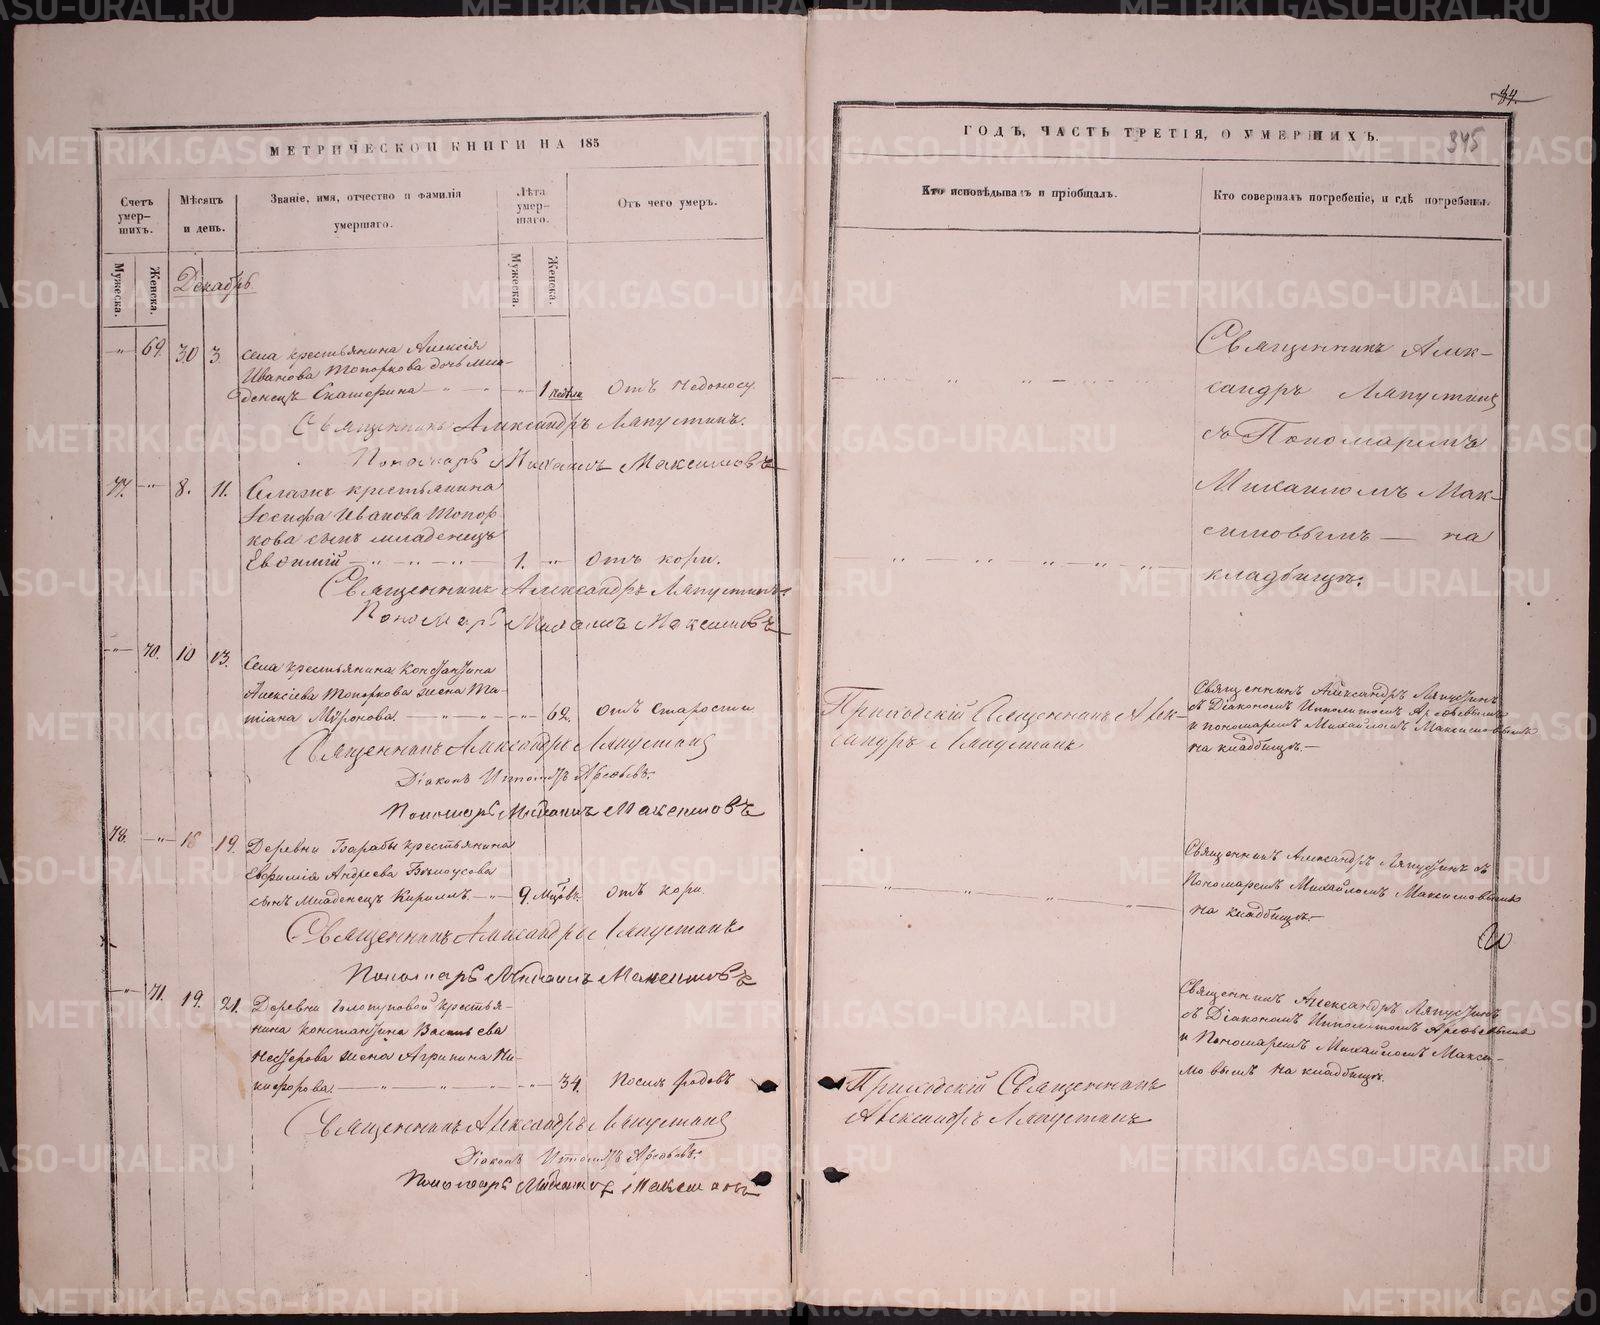 84.
345
МЕТРИЧЕСКОЙ КНИГИ НА 185
Счетъ умер-
шихъ.
Мѣсяцъ
и день.
Званіе, имя, отчество и фамилія
умершаго.
Лѣта
умер-
шаго.
Отъ чего умеръ.
Мужеска.
Женска.
Мужеска.
Женска.
Декабрь
69. 30 3. Села крестьянина Алексія
Иванова Топоркова дочь мла-
денецъ Екатерина 1 недѣли отъ недоносу
Священникъ Александръ Ляпустинъ.
Пономарь Михаилъ Максимовъ
77. 8. 11. Села крестьянина
Іосифа Иванова Топор
кова сынъ младенецъ
Евѳимій 1. отъ кори.
Священникъ Александръ Ляпустинъ.
Пономарь Михаилъ Максимовъ
70. 10 13. Села крестьянина Константина
Алексіева Топоркова жена Та-
тіана Мѵронова. 62. отъ старости
Священникъ Александръ Ляпустинъ
Діаконъ Ипполитъ Арефьевъ.
Пономарь Михаилъ Максимовъ
78. 16 19. Деревни Барабы крестьянина
Евфимія Андреева Бѣлоусова
сынъ младенецъ Кириллъ 9. мѣсяцовъ. отъ кори.
Священникъ Александръ Ляпустинъ
Пономарь Михаилъ Максимовъ
71. 19. 21. Деревни Голопуповой крестья-
нина Константина Васильева
Нестерова жена Агрипина Ни-
кифорова. 34. Послѣ родовъ
Священникъ Александръ Ляпустинъ
Діаконъ Ипполитъ Арефьевъ.
Пономарь Михаилъ Максимовъ
ГОДЪ, ЧАСТЬ ТРЕТІЯ, О УМЕРШИХЪ.
Кто исповѣдывалъ и пріобщалъ.
Кто совершалъ погребеніе, и гдѣ погребены.
Священникъ Алек-
сандръ Ляпустинъ
съ Пономаремъ
Михаиломъ Мак-
симовымъ — на
кладбищѣ.
Приходскій Священникъ Алек-
сандръ Ляпустинъ
Священникъ Александръ Ляпустинъ
съ Діакономъ Ипполитомъ Арефьевымъ
и пономаремъ Михайломъ Максимовымъ
на кладбищѣ.—
Священникъ Александръ Ляпустинъ съ
Пономаремъ Михайломъ Максимовымъ
на кладбищѣ.—
Приходскій Священникъ
Александръ Ляпустинъ
Священникъ Александръ Ляпустинъ
съ Діакономъ Ипполитомъ Арефьевымъ
и Пономаремъ Михайломъ Макси-
мовымъ на кладбищѣ.
METRIKI.GASO-URAL.RU